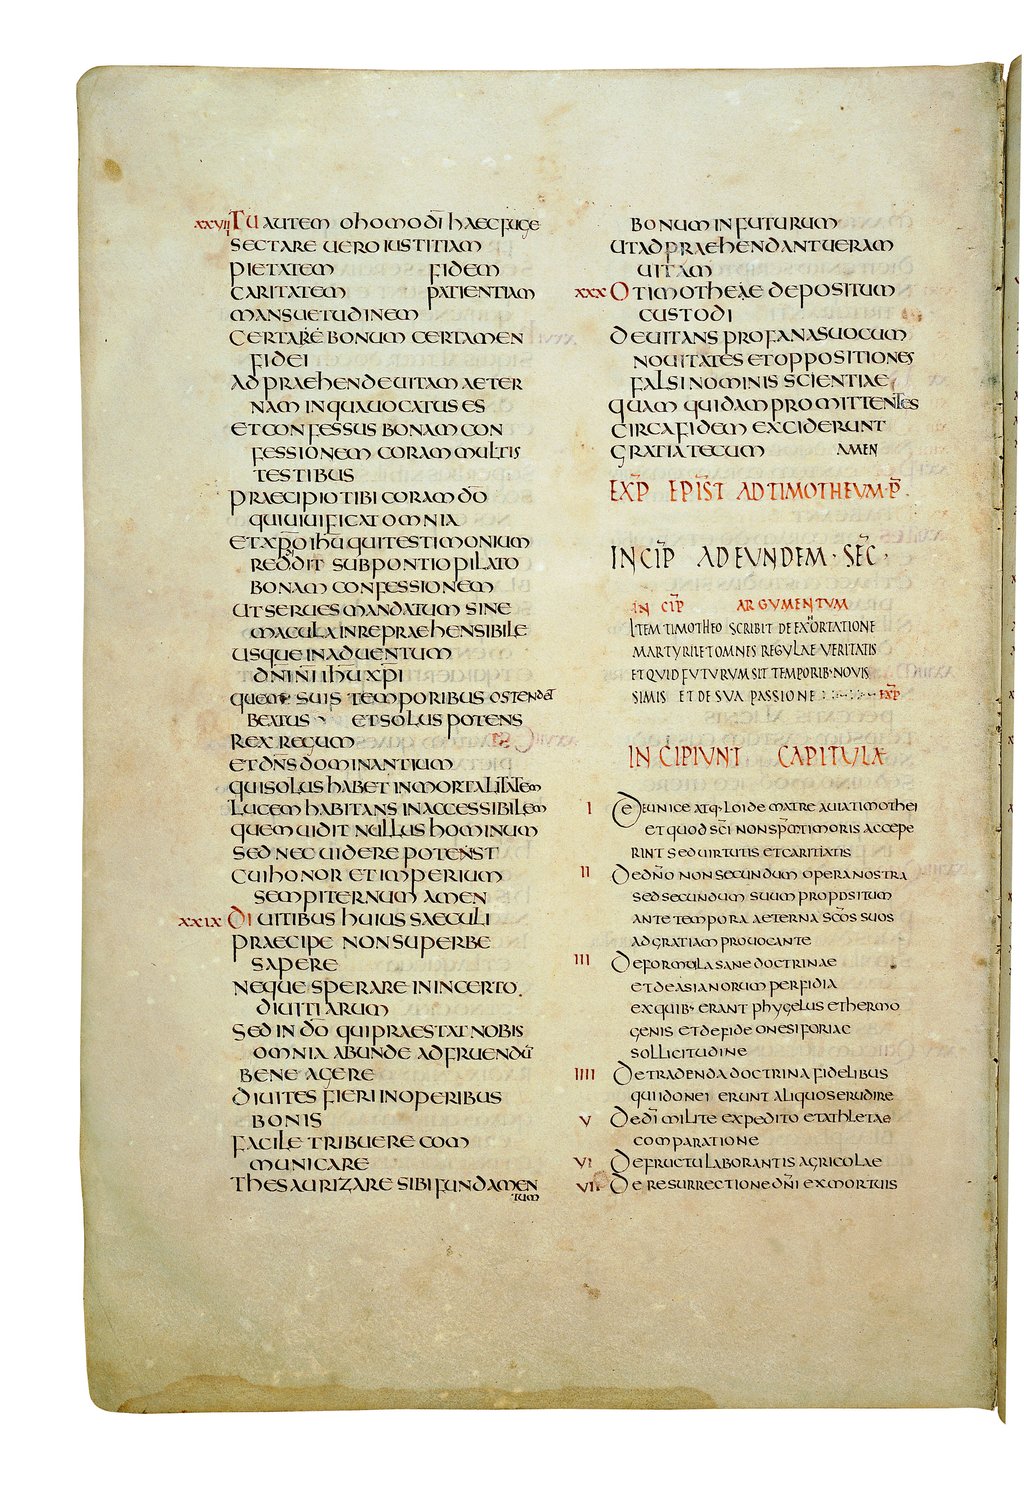 XXVII TU AUTEM O HOMO D̄I HAEC FUGE
SECTARE UERO IUSTITIAM
PIETATEM FIDEM
CARITATEM PATIENTIAM
MANSUETUDINEM
CERTARE BONUM CERTAMEN
FIDEI
ADPRAEHENDE UITAM AETER
NAM IN QUA UOCATUS ES
ET CONFESSUS BONAM CON
FESSIONEM CORAM MULTIS
TESTIBUS
PRAECIPIO TIBI CORAM D̄O
QUI UIUIFICAT OMNIA
ET X̄P̄O IH̄U QUI TESTIMONIUM
REDDIT SUB PONTIO PILATO
BONAM CONFESSIONEM
UT SERUES MANDATUM SINE
MACULA INREPRAEHENSIBILE
USQUE IN ADUENTUM
D̄N̄I N̄I IH̄U X̄P̄I
QUEM SUIS TEMPORIBUS OSTENDET
BEATUS ET SOLUS POTENS
REX REGUM
ET D̄N̄S DOMINANTIUM
QUI SOLUS HABET INMORTALITATEM
LUCEM HABITANS INACCESSIBILEM
QUEM UIDIT NULLUS HOMINUM
SED NEC UIDERE POTENST
CUI HONOR ET IMPERIUM
SEMPITERNUM AMEN
XXIX DIUITIBUS HUIUS SAECULI
PRAECIPE NON SUPERBE
SAPERE
NEQUE SPERARE IN INCERTO
DIUITIARUM
SED IN D̄O QUI PRAESTAT NOBIS
OMNIA ABUNDE AD FRUENDŪ
BENE AGERE
DIUITES FIERI IN OPERIBUS
BONIS
FACILE TRIBUERE COM
MUNICARE
THESAURIZARE SIBI FUNDAMEN
TUM
BONUM IN FUTURUM
UT ADPRAEHENDANT UERAM
UITAM
XXX O TIMOTHEAE DEPOSITUM
CUSTODI
DEUITANS PROFANAS UOCUM
NOUITATES ET OPPOSITIONES
FALSI NOMINIS SCIENTIAE
QUAM QUIDAM PROMITTENTES
CIRCA FIDEM EXCIDERUNT
GRATIA TECUM AMEN
EXP̄ EPIST̄ AD TIMOTHEVM·P̄·
INCIP̄ AD EVNDEM·SEC̄·
INCIP̄ ARGVMENTVM
ITEM TIMOTHEO SCRIBIT DE EXHORTATIONE
MARTYRII ET OMNES REGVLAE VERITATIS
ET QVID FVTVRVM SIT TEMPORIB·NOVIS
SIMIS ET DE SVA PASSIONE EXP̄
INCIPIVNT CAPITVLA
I DE EUNICE ATQ· LOIDE MATRE AUIA TIMOTHEI
ET QUOD SC̄I NON SP̄M TIMORIS ACCEPE
RINT SED UIRTUTIS ET CARITATIS
II DE D̄N̄O NON SECUNDUM OPERA NOSTRA
SED SECUNDUM SUUM PROPOSITUM
ANTE TEMPORA AETERNA SC̄OS SUOS
AD GRATIAM PROUOCANTE
III DE FORMULA SANE DOCTRINAE
ET DE ASIANORUM PERFIDIA
EX QUIB· ERANT PHYGELUS ET HERMO
GENIS ET DE FIDE ONESIFORIAE
SOLLICITUDINE
IIII DE TRADENDA DOCTRINA FIDELIBUS
QUI IDONEI ERUNT ALIQUOS ERUDIRE
V DE D̄I MILITE EXPEDITO ET ATHLETAE
COMPARATIONE
VI DE FRUCTU LABORANTIS AGRICOLAE
VII DE RESURRECTIONE D̄N̄I EX MORTUIS